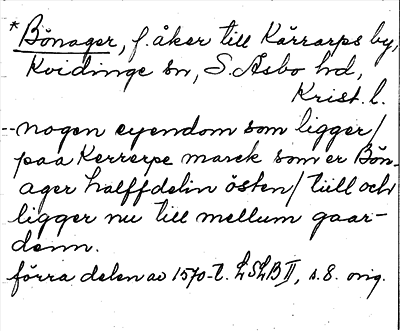 * Bönager, f. åker till Kärrarps by,
Kvidinge sn, S. Åsbo hd,
Krist. l.
--nogen eyendom som ligger/
paa Kerrerpe marck som er Bön-
ager halffdelin östen/ tiill och
ligger nu till mellum gaar-
denn.
förra delen av 1570-t. LSLB II, s. 8. orig.